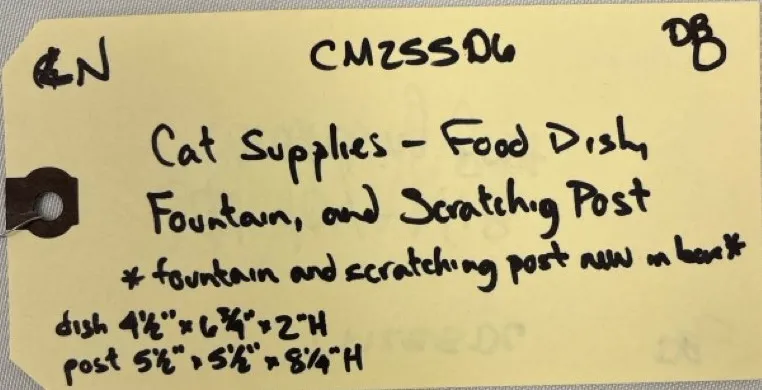 N CM255D6 DB
Cat Supplies - Food Dish,
Fountain, and Scratchig Post
* fountain and scratching post new in box *
dish 4½" x 6¾" x 2"H
post 5½" x 5½" x 8¼"H